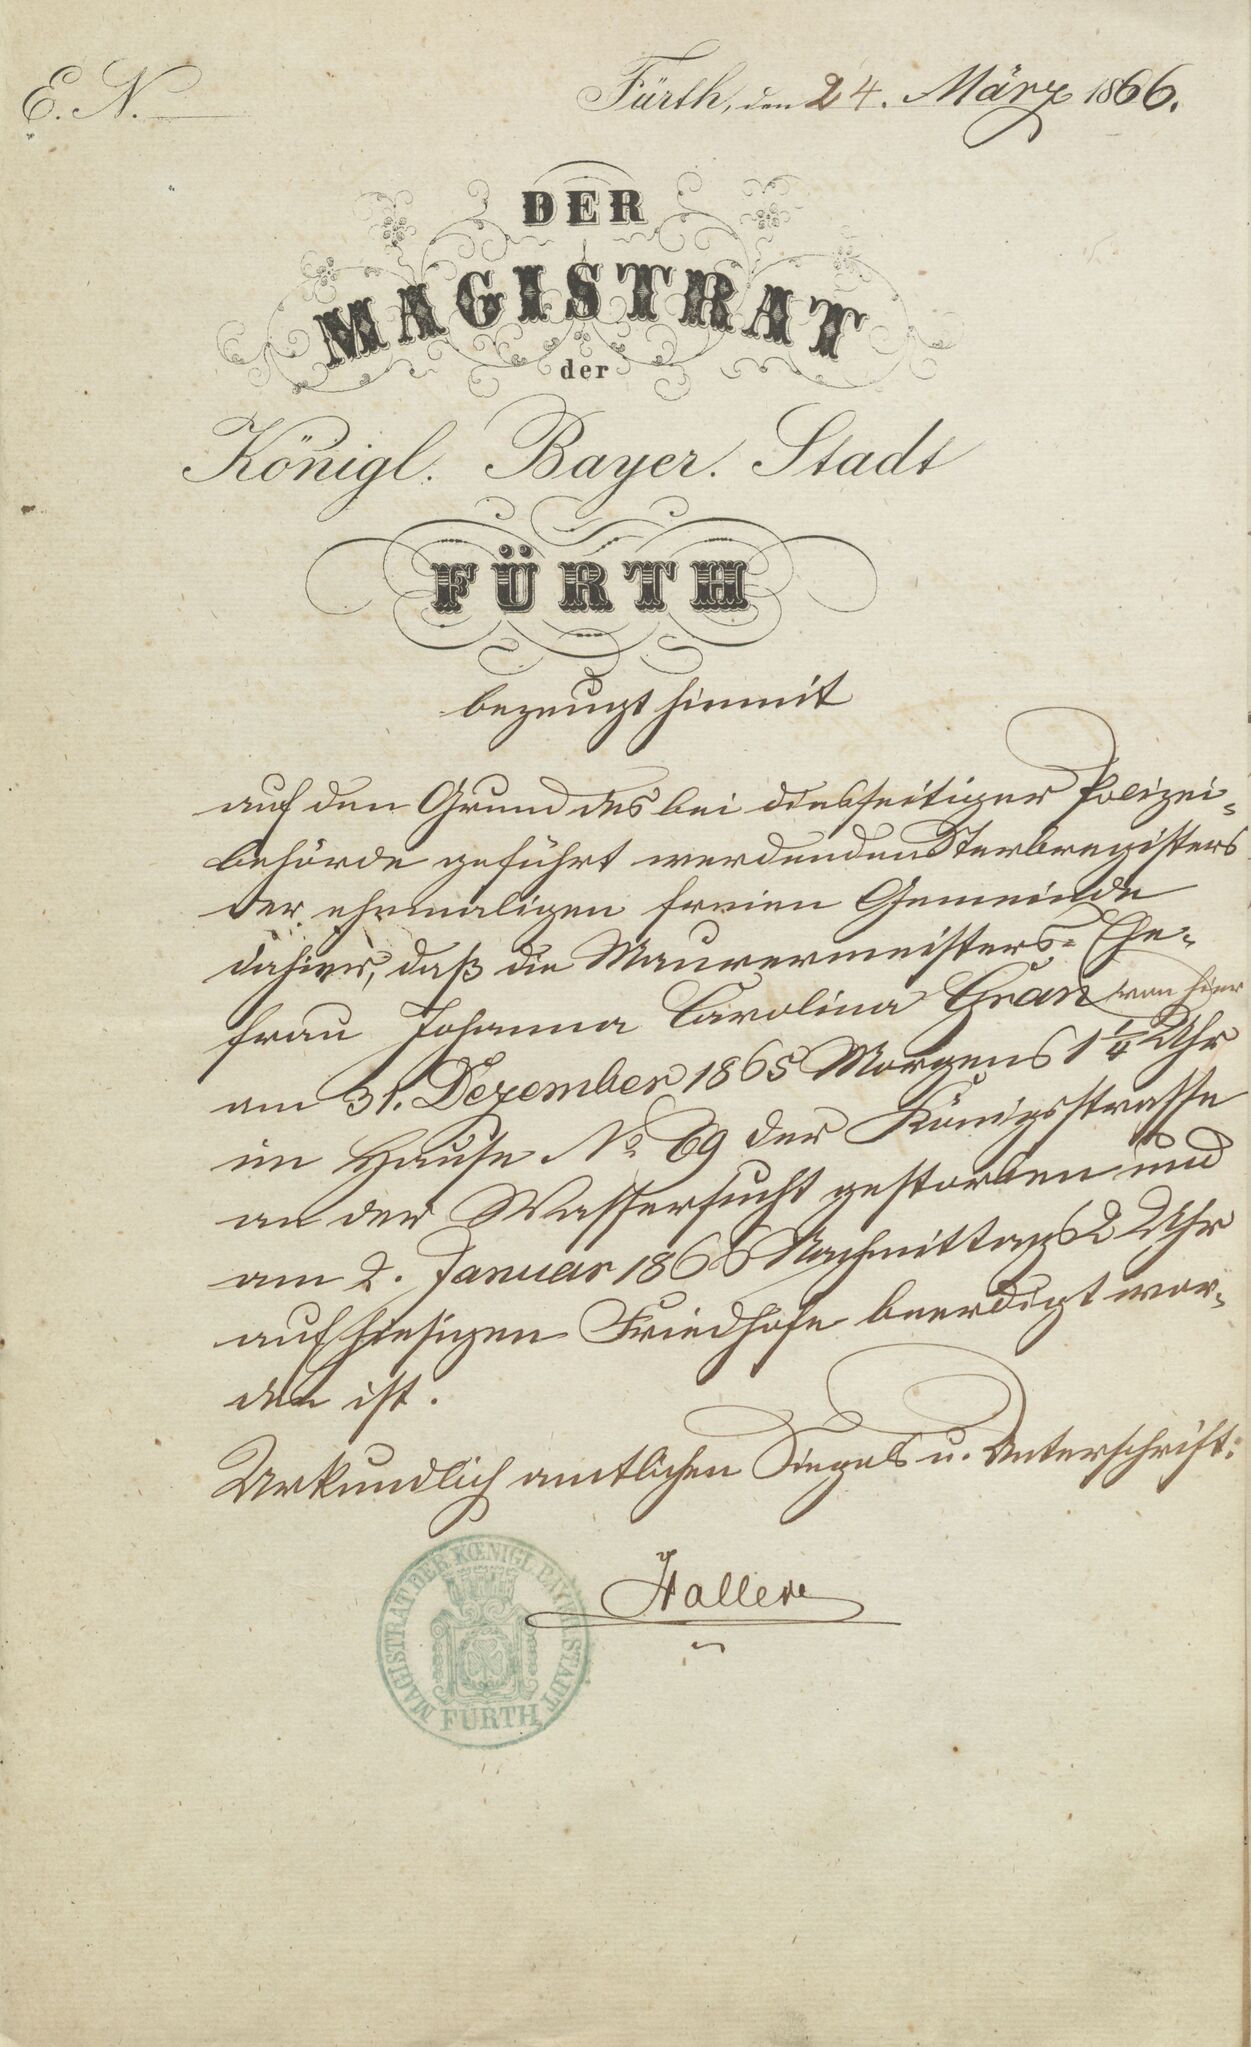 E. N.
Fürth, den 24. März 1866.
DER
MAGISTRAT
der
Königl. Bayer. Stadt
FÜRTH
bezeugt hiemit
auf den Grund des bei diesseitiger Polizei-
behörde geführt werdenden Sterbregisters
der ehemaligen freien Gemeinde
dahier, daß die Maurermeisters-Ehe-
frau Johanna Carolina Gran von hier
am 31. Dezember 1865 Morgens 1 1/4 Uhr
im Hause No 69 der Königsstrasse
an der Wassersucht gestorben und
am 2. Januar 1866 Nachmittags 2 Uhr
auf hiesigen Friedhofe beerdigt wor-
den ist.
Urkundlich amtlichen Siegels u. Unterschrift:
Haller
MAGISTRAT DER KŒNIGL. BAYER. STADT
FÜRTH